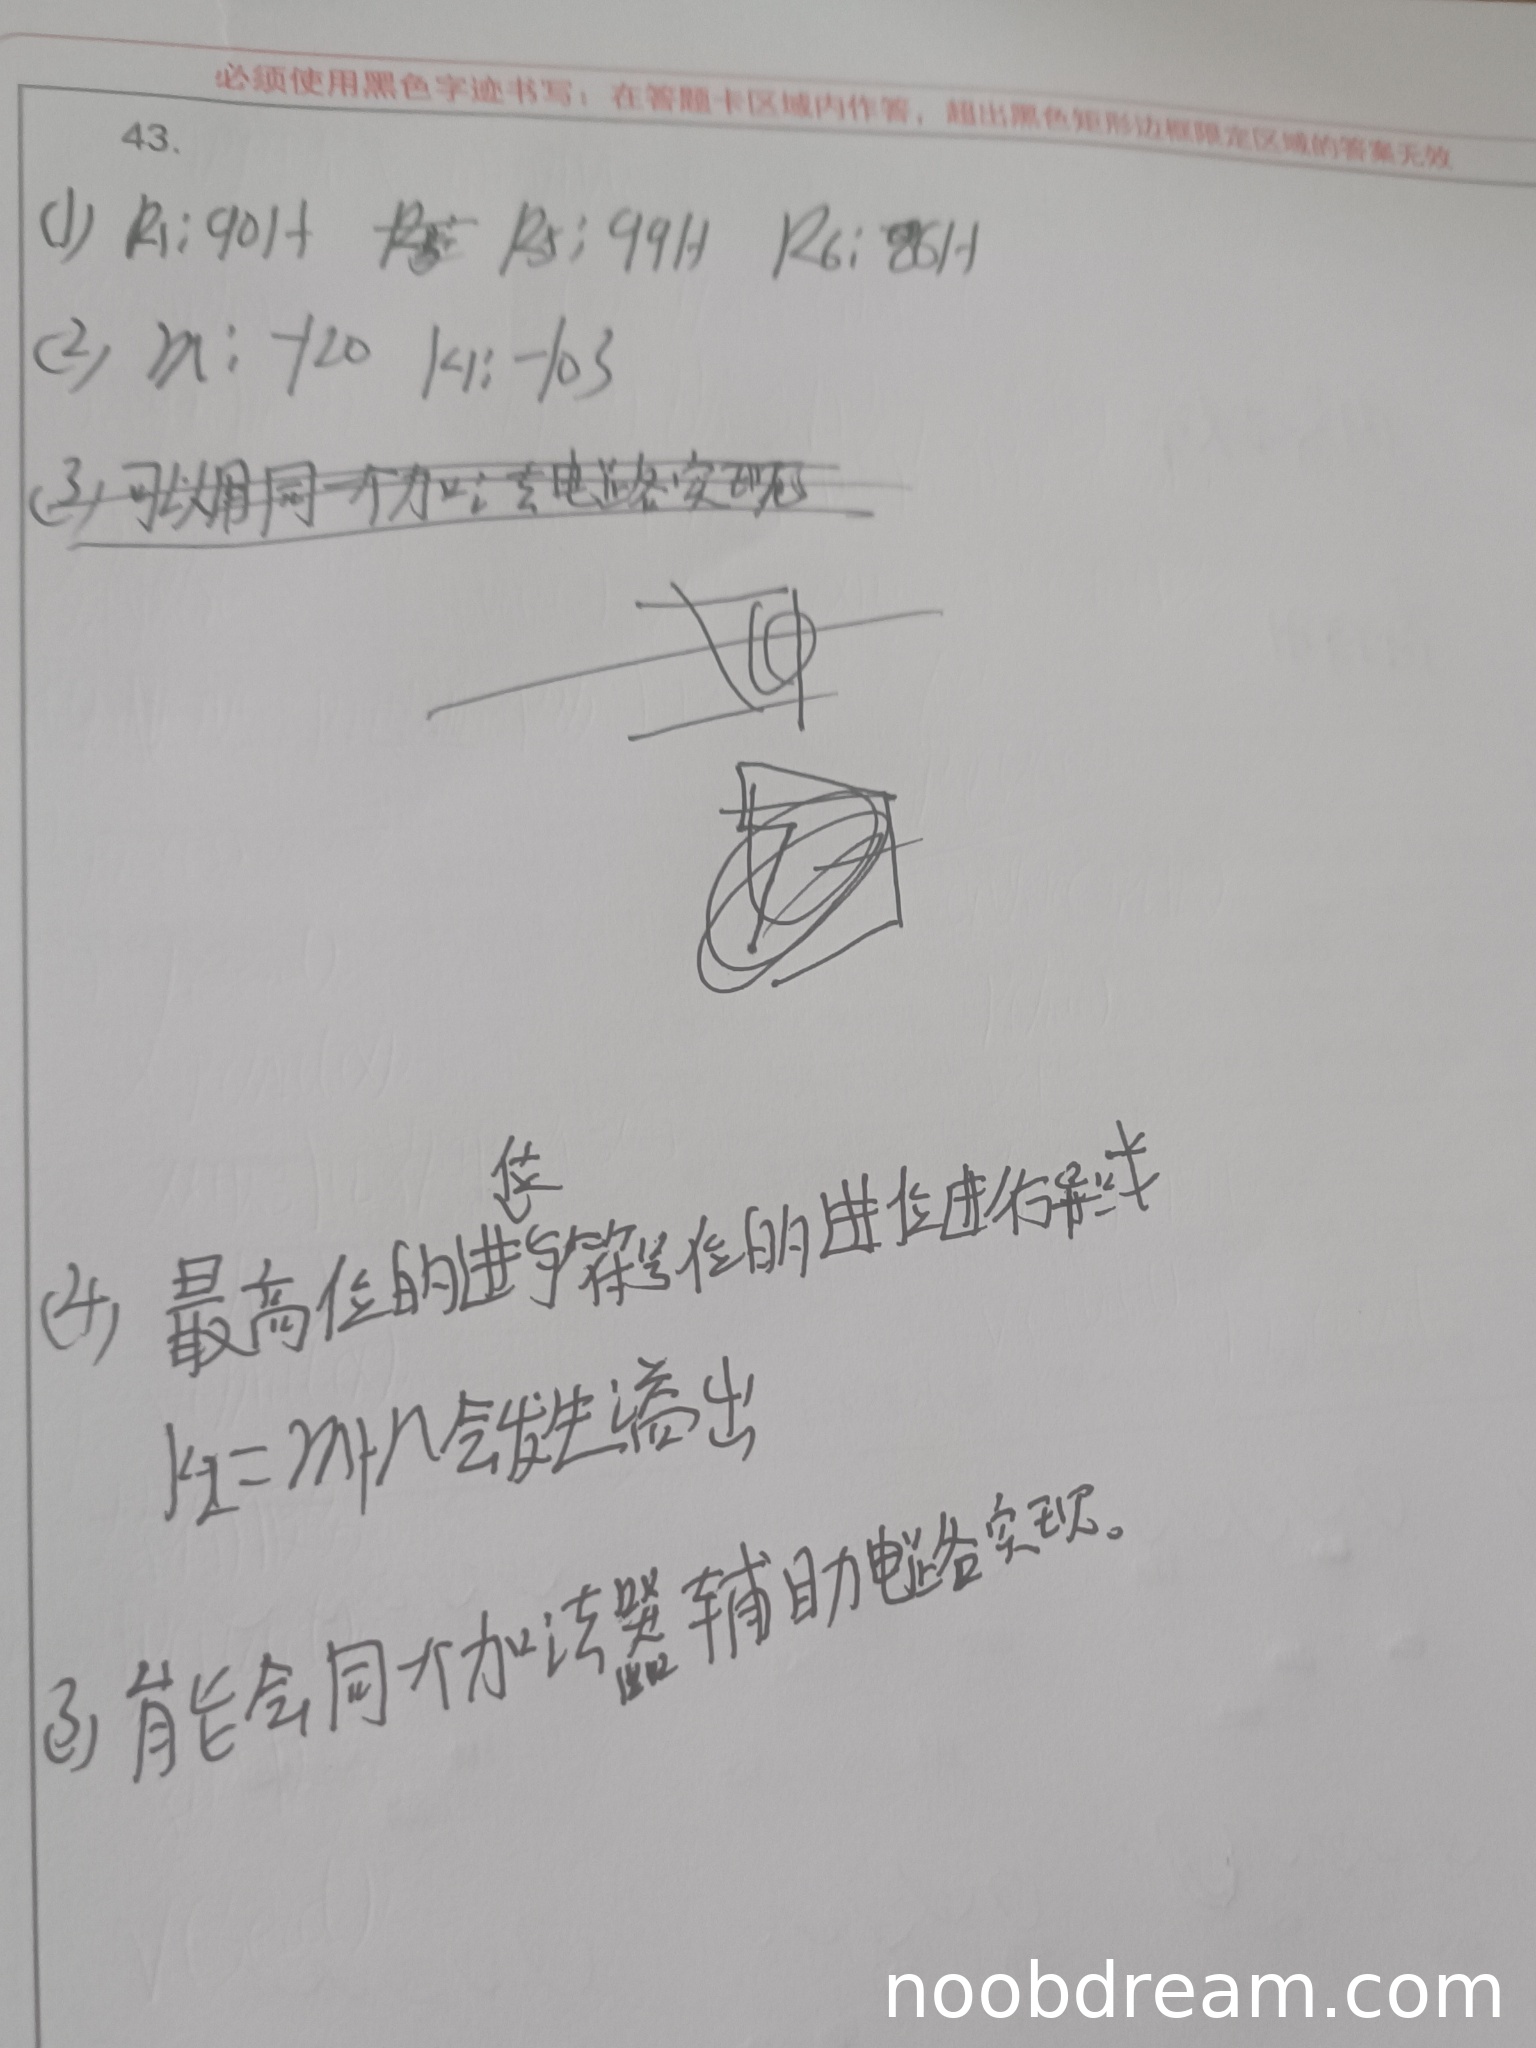 必须使用黑色字迹书写；在答题卡区域内作答，超出黑色矩形边框限定区域的答案无效
43.
(1) R1: 90H R5: 99H R6: H
(2) m: -120 K1: -103
(3) 可以用同一个加法电路实现
位
(4) 最高位的进与符号位的进位进行
K2=m+n会发生溢出
(3) 能会同一个加法器 辅助电路实现。
noobdream.com